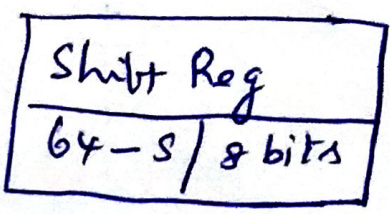 Shift Reg
64-S/8 bits